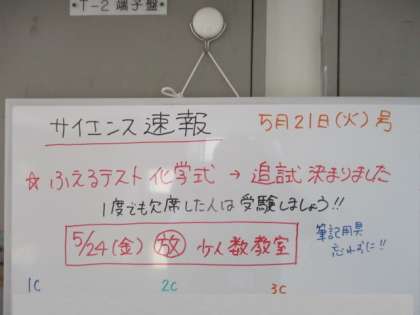 *T-2 端子盤*
サイエンス速報 5月21日(火)号
☆ ふえるテスト 化学式 → 追試決まりました
1度でも欠席した人は受験しましょう!!
5/24(金) 放 少人数教室
筆記用具
忘れずに!!
1C 2C 3C